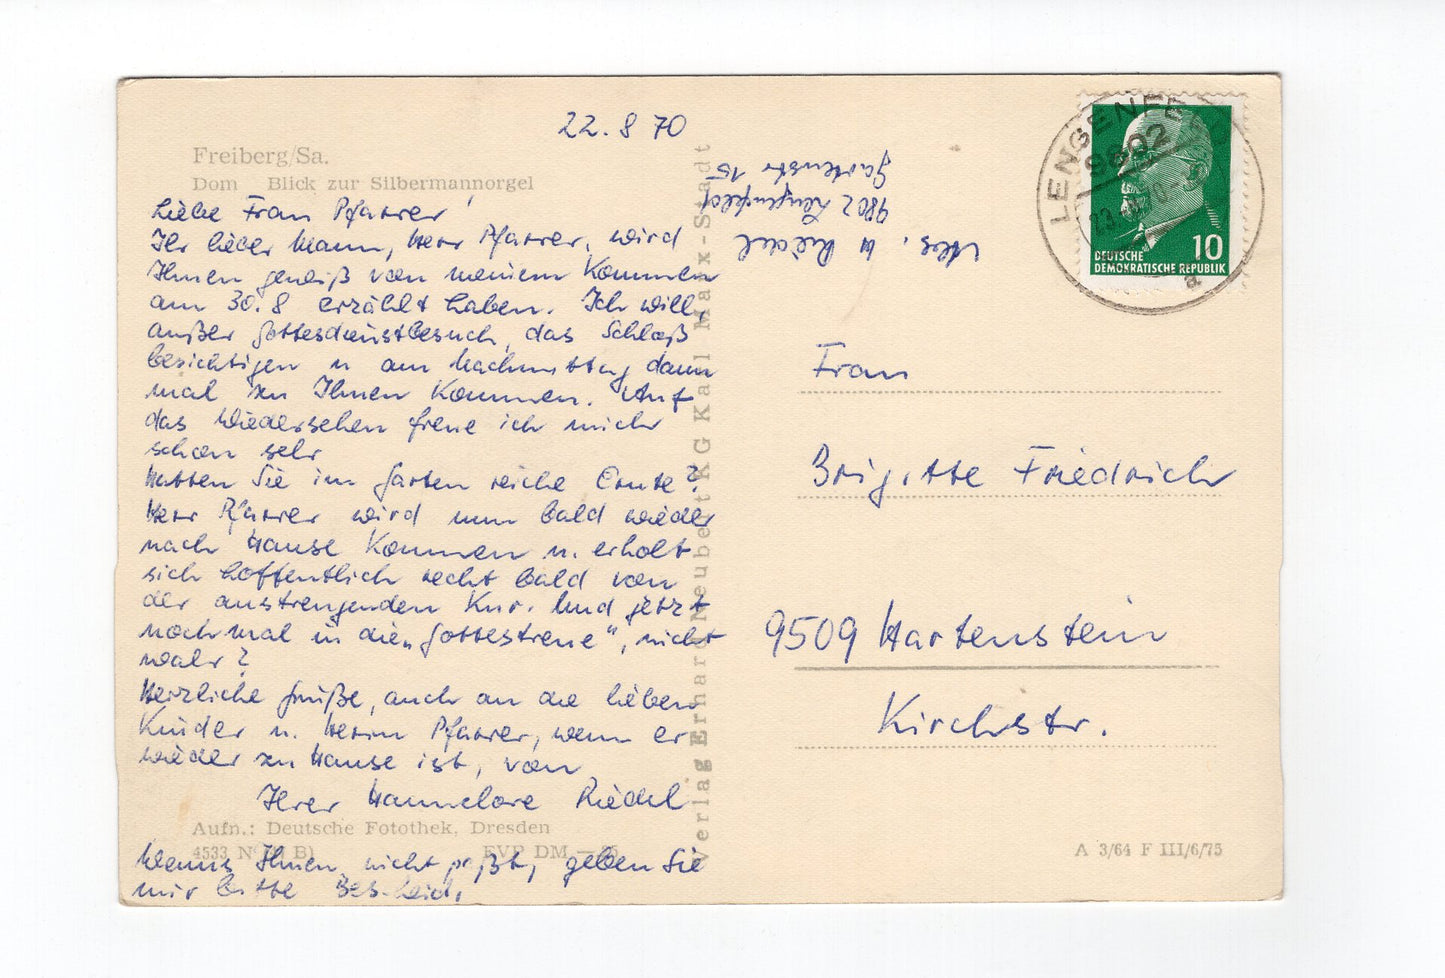 22.8 70
Freiberg/Sa.
Dom Blick zur Silbermannorgel
Liebe Frau Pfarrer!
Ihr lieber Mann, Herr Pfarrer, wird
Ihnen gewiß von meinem Kommen
am 30.8 erzählt haben. Ich will,
außer Gottesdienstbesuch, das Schloß
besichtigen u am Nachmittag dann
mal zu Ihnen kommen. Auf
das Wiedersehen freue ich mich
schon sehr
Hatten Sie im Garten reiche Ernte?
Herr Pfarrer wird nun bald wieder
nach Hause kommen u. erholt
sich hoffentlich recht bald von
der anstrengenden Kur. Und jetzt
nochmal in die „Gottestreue", nicht
wahr?
Herzliche Grüße, auch an die lieben
Kinder u. Herrn Pfarrer, wenn er
wieder zu Hause ist, von
Ihrer Hannelore Riedel
Aufn.: Deutsche Fotothek, Dresden
4533 N
EVP DM
Wenns Ihnen nicht paßt, geben Sie
mir bitte Bescheid.
Verlag Erhard Neubert KG Karl-Marx-Stadt
Abs. H Riedel
9802 Lengenfeld
Gartenstr 15
LENGENFELD
9802
a
10
DEUTSCHE
DEMOKRATISCHE REPUBLIK
Frau
Brigitte Friedrich
9509 Hartenstein
Kirchstr.
A 3/64 F III/6/75